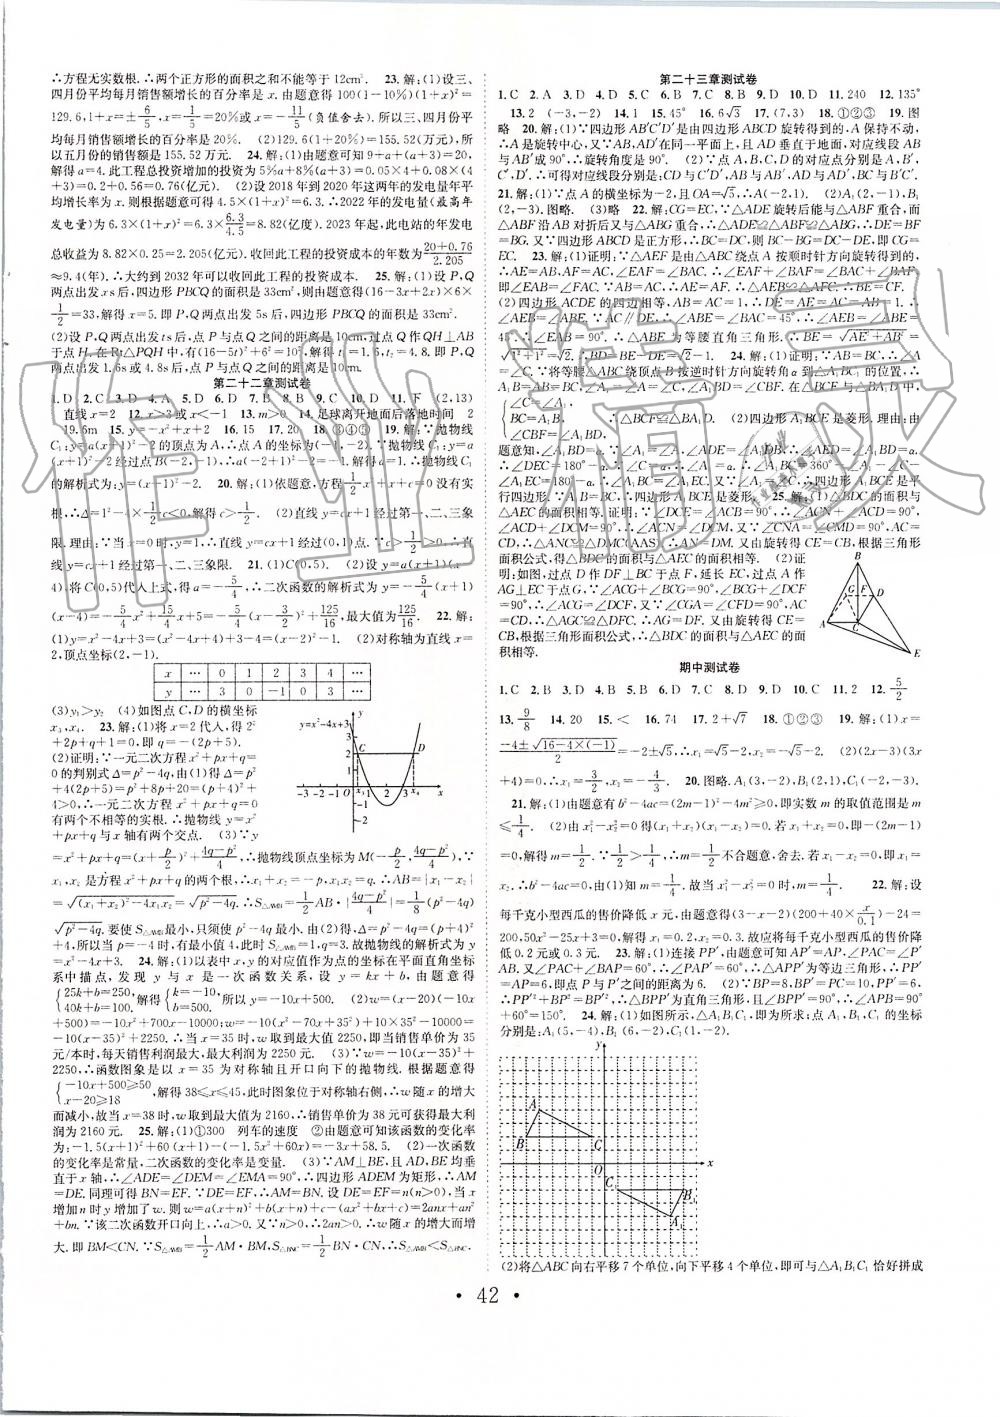 ∴方程无实数根.∴两个正方形的面积之和不能等于12cm². 23.解:(1)设三、
四月份平均每月销售额增长的百分率是x.由题意得100(1-10%)(1+x)²=
129.6,1+x=±6/5,∴x=1/5=20%或x=-11/5(负值舍去).所以三、四月份平
均每月销售额增长的百分率是20%. (2)129.6(1+20%)=155.52(万元),所
以五月份的销售额是155.52万元. 24.解:(1)由题意可知9+a+(a+3)=20,
解得a=4.此工程总投资增加的投资为5%a+8%(a+3)=0.05×4+0.08×(4
+3)=0.2+0.56=0.76(亿元). (2)设2018年到2020年这两年的发电量年平
均增长率为x.则根据题意可得:4.5(1+x)²=6.3.∴2022年的发电量(最高年
发电量)为6.3×(1+x)²=6.3×6.3/4.5=8.82(亿度).2023年起,此电站的年发电
总收益为8.82×0.25=2.205(亿元).∴收回此工程的投资成本的年数为(20+0.76)/2.205
≈9.4(年).∴大约到2032年可以收回此工程的投资成本. 25.解:(1)设P,Q
两点出发xs后,四边形PBCQ的面积是33cm²,则由题意得(16-3x+2x)×6×
1/2=33,解得x=5.即P,Q两点出发5s后,四边形PBCQ的面积是33cm².
(2)设P,Q两点出发ts后,点P与点Q之间的距离是10cm,过点Q作QH⊥AB
于点H.在Rt△PQH中,有(16-5t)²+6²=10²,解得t₁=1.6,t₂=4.8.即P,Q
两点出发1.6s或4.8s后,点P与点Q之间的距离是10cm.
第二十二章测试卷
1.D 2.C 3.D 4.A 5.D 6.D 7.B 8.B 9.C 10.D 11.下 (2,13)
直线x=2 12.x>3或x<-1 13.m>0 14.足球离开地面后落地时间 2
19.6m 15.y=-x²+x+2 16.15 17.20 18.③④⑤ 19.解:∵抛物线
C₁:y=a(x+1)²-2的顶点为A,∴点A的坐标为(-1,-2).∵抛物线C₁:y=a(x
+1)²-2经过点B(-2,-1),∴a(-2+1)²-2=-1.解得a=1.∴抛物线C₁
的解析式为:y=(x+1)²-2. 20.解:(1)依题意,方程x²+x+c=0没有实
根,∴Δ=1²-4×1×c<0,解得c>1/4. (2)直线y=cx+1经过第一、二、三象
限.理由:∵当x=0时,y=1,∴直线y=cx+1经过(0,1)点.∵c>1/4,∴直线y=
cx+1经过第一、二、三象限. 21.(1)C(0,5). (2)设y=a(x+1)(x
-4).将C(0,5)代入上式,得a=-5/4,∴二次函数的解析式为y=-5/4(x+1)(x
-4)=-5/4x²+15/4x+5=-5/4(x-3/2)²+125/16,最大值为125/16. 22.解:
(1)y=x²-4x+3=(x²-4x+4)+3-4=(x-2)²-1. (2)对称轴为直线x=
2,顶点坐标(2,-1).
x … 0 1 2 3 4 …
y … 3 0 -1 0 3 …
(3)y₁>y₂ (4)如图点C,D的横坐标
x₃,x₄. 23.解:(1)将x=2代人,得2²
+2p+q+1=0,即q=-(2p+5).
(2)证明:∵一元二次方程x²+px+q=
0的判别式Δ=p²-4q,由(1)得Δ=p²
+4(2p+5)=p²+8p+20=(p+4)²+
4>0,∴一元二次方程x²+px+q=0
有两个不相等的实根.∴抛物线y=x²
+px+q与x轴有两个交点. (3)∵y
=x²+px+q=(x+p/2)²+(4q-p²)/4,∴抛物线顶点坐标为M(-p/2,(4q-p²)/4),∵
x₁,x₂是方程x²+px+q=0的两个根,∴x₁+x₂=-p,x₁x₂=q.∴AB=|x₁-x₂|
=√((x₁+x₂)²-4x₁x₂)=√(p²-4q).∴S△AMB=1/2AB·|(4q-p²)/4|=1/8(p²-4q)
√(p²-4q).要使S△AMB最小,只须使p²-4q最小.由(2)得,Δ=p²-4q=(p+4)²
+4,所以当p=-4时,有最小值4,此时S△AMB=1,q=3.故抛物线的解析式为y
=x²-4x+3. 24.解:(1)以表中x,y的对应值作为点的坐标在平面直角坐标
系中描点,发现y与x是一次函数关系,设y=kx+b,由题意得
{25k+b=250, 40k+b=100.解得{k=-10, b=500.所以y=-10x+500. (2)w=(x-20)(-10x
+500)=-10x²+700x-10000;w=-10(x-35)²+10×35²-10000
=-10(x-35)²+2250.∴当x=35时,w取到最大值2250,即当销售单价为35
元/本时,每天销售利润最大,最大利润为2250元. (3)∵w=-10(x-35)²+
2250,∴函数图象是以x=35为对称轴且开口向下的抛物线.根据题意得
{-10x+500≥50 x-20≥18,解得38≤x≤45,此时图象位于对称轴右侧,∴w随x的增大
而减小,故当x=38时,w取到最大值为2160,∴销售单价为38元可获得最大利
润为2160元. 25.解:(1)①300 列车的速度 ②由题意可知该函数的变化率为:
-1.5(x+1)²+60(x+1)-(-1.5x²+60x)=-3x+58.5. (2)一次函数
的变化率是常量,二次函数的变化率是变量. (3)∵AM⊥BE,且AD,BE均垂
直于x轴,∴∠ADE=∠DEM=∠EMA=90°,∴四边形ADEM为矩形,∴AM
=DE.同理可得BN=EF.∵DE=EF,∴AM=BN.设DE=EF=n(n>0),当x
增加n时y增加了w.则w=a(x+n)²+b(x+n)+c-(ax²+bx+c)=2anx+an²
+bn.∵该二次函数开口向上,∴a>0.又∵n>0,∴2an>0.∴w随x的增大而增
大.即BM<CN.∵S△AMB=1/2AM·BM,S△BNC=1/2BN·CN,∴S△AMB<S△BNC.
第二十三章测试卷
1.C 2.A 3.D 4.A 5.D 6.C 7.C 8.B 9.D 10.D 11.240 12.135°
13.2 (-3,-2) 14.1 15.45° 16.6√3 17.(7,3) 18.①②③ 19.图
略 20.解:(1)∵四边形AB′C′D′是由四边形ABCD旋转得到的,A保持不动,
∴A是旋转中心,又∵AB,AD′在同一平面上,且AD垂直于地面,对应线段AB
与AB′成90°,∴旋转角度是90°. (2)∵点A,B,C,D的对应点分别是A,B′,
C′,D′,∴可得对应线段分别是:CD与C′D′,AB与AB′,AD与AD′,BC与B′C′.
21.解:(1)∵点A的横坐标为-2,且OA=√5,∴A(-2,1). (2)A(2,-1),B
(2,-3).图略. (3)略 22.解:CG=EC.∵△ADE旋转后能与△ABF重合,而
△ABF沿AB对折后又与△ABG重合,∴△ADE≌△ABF≌△ABG.∴DE=BF
=BG.又∵四边形ABCD是正方形,∴BC=DC,则BC-BG=DC-DE,∴CG=
EC. 23.解:(1)∵△AEF是由△ABC绕点A按顺时针方向旋转得到的,
∴AE=AB,AF=AC,∠EAF=∠BAC.∴∠EAF+∠BAF=∠BAC+∠BAF,
即∠EAB=∠FAC.∵AB=AC,∴AE=AF.∴△AEB≌△AFC.∴BE=CF.
(2)四边形ACDE的四边相等,AB=AC=1,∴DE=AE=AC=AB=1,
∠BAC=45°,∴∠AEB=∠ABE=∠BAC=45°,∴△ABE为等腰直角三角形,∴BE=√(AE²+AB²)=
√(1²+1²)=√2,∴BD=BE-DE=√2-1. 24.解:(1)证明:∵AB=BC,∴∠A=
∠C,∵将等腰△ABC绕顶点B按逆时针方向旋转角α到△A₁BC₁的位置,∴
{∠C=∠A₁, BC=A₁B, ∠CBF=∠A₁BD,∴△BCF≌△BA₁D. (2)四边形A₁BCE是菱形.理由:由
题意知,∠C=∠A₁,∠ADE=∠A₁DB,∴∠AED=∠A₁BD=α.∴
∠DEC=180°-α.∵∠C=α,∴∠A₁=α.∴∠A₁BC=360°
行四边形.∵A₁B=BC,∴四边形A₁BCE是菱形. 25.解:(1)△BDC的面积与
△AEC的面积相等.
面积公式,得△BDC的面积与△AEC的面积相等. (2)证
明:如图,过点D作DF⊥BC于点F,延长EC,过点A作
AG⊥EC于点G,∵∠BCE=90°,∴∠BCG=90°,∴∠ACG+∠ACF
=90°,∴∠ACG=∠DCF.又∵∠AGC=∠DFC=90°,AC=
CD,∴△ACG≌△DCF.∴AG=DF.又由旋转得CE=
CB,根据三角形面积公式,∴△BDC的面积与△AEC的面
积相等.
期中测试卷
1.C 2.B 3.D 4.D 5.A 6.C 7.B 8.D 9.D 10.C 11.2 12.5/2
13.-9/8 14.20 15.< 16.74 17.2+√7 18.①②③ 19.解:(1)x=
(-4±√(16-4×(-1)))/2=-2±√5,∴x₁=√5-2,x₂=-√5-2. (2)(2x-3)(3x
+4)=0.∴x₁=3/2,x₂=-4/3. 20.图略.A₁(3,-2),B₁(2,1),C₁(-2,-3).
21.解:(1)由题意有b²-4ac=(2m-1)²-4m²≥0,即实数m的取值范围是m
≤1/4. (2)由x₁²-x₂²=0得(x₁+x₂)(x₁-x₂)=0.若x₁+x₂=0,即-(2m-1)
=0,解得m=1/2.∵1/2>1/4,∴m=1/2不合题意,舍去.若x₁-x₂=0,即x₁=
x₂,∴b²-4ac=0,由(1)知m=1/4.故当x₁²-x₂²=0时,m=1/4. 22.解:设
每千克小型西瓜的售价降低x元,由题意得(3-x-2)(200+40×x/0.1)-24=
200,50x²-25x+3=0.解得x₁=0.2,x₂=0.3.故应将每千克小型西瓜的售价降
低0.2元或0.3元. 23.解:(1)连接PP′,由题意可知AP=AP′,∠PAC=∠P′
AB.又∠PAC+∠BAP=60°,∴∠PAP′=60°,∴△APP′为等边三角形,∴PP′
=AP=6,即点P与P′之间的距离为6. (2)∵BP=8,BP′=PC=10,PP′=6,
∴PP′²+BP²=BP′²,∴△BPP′为直角三角形,且∠BPP′=90°,∴∠APB=90°
+60°=150°. 24.解:(1)如图所示,△A₁B₁C₁即为所求:点A₁,B₁,C₁的坐标
分别是:A₁(5,-4),B₁(6,-2),C₁(1,-2).
(2)将△ABC向右平移7个单位,向下平移4个单位,即可与△A₁B₁C₁恰好拼成
• 42 •
作业精灵